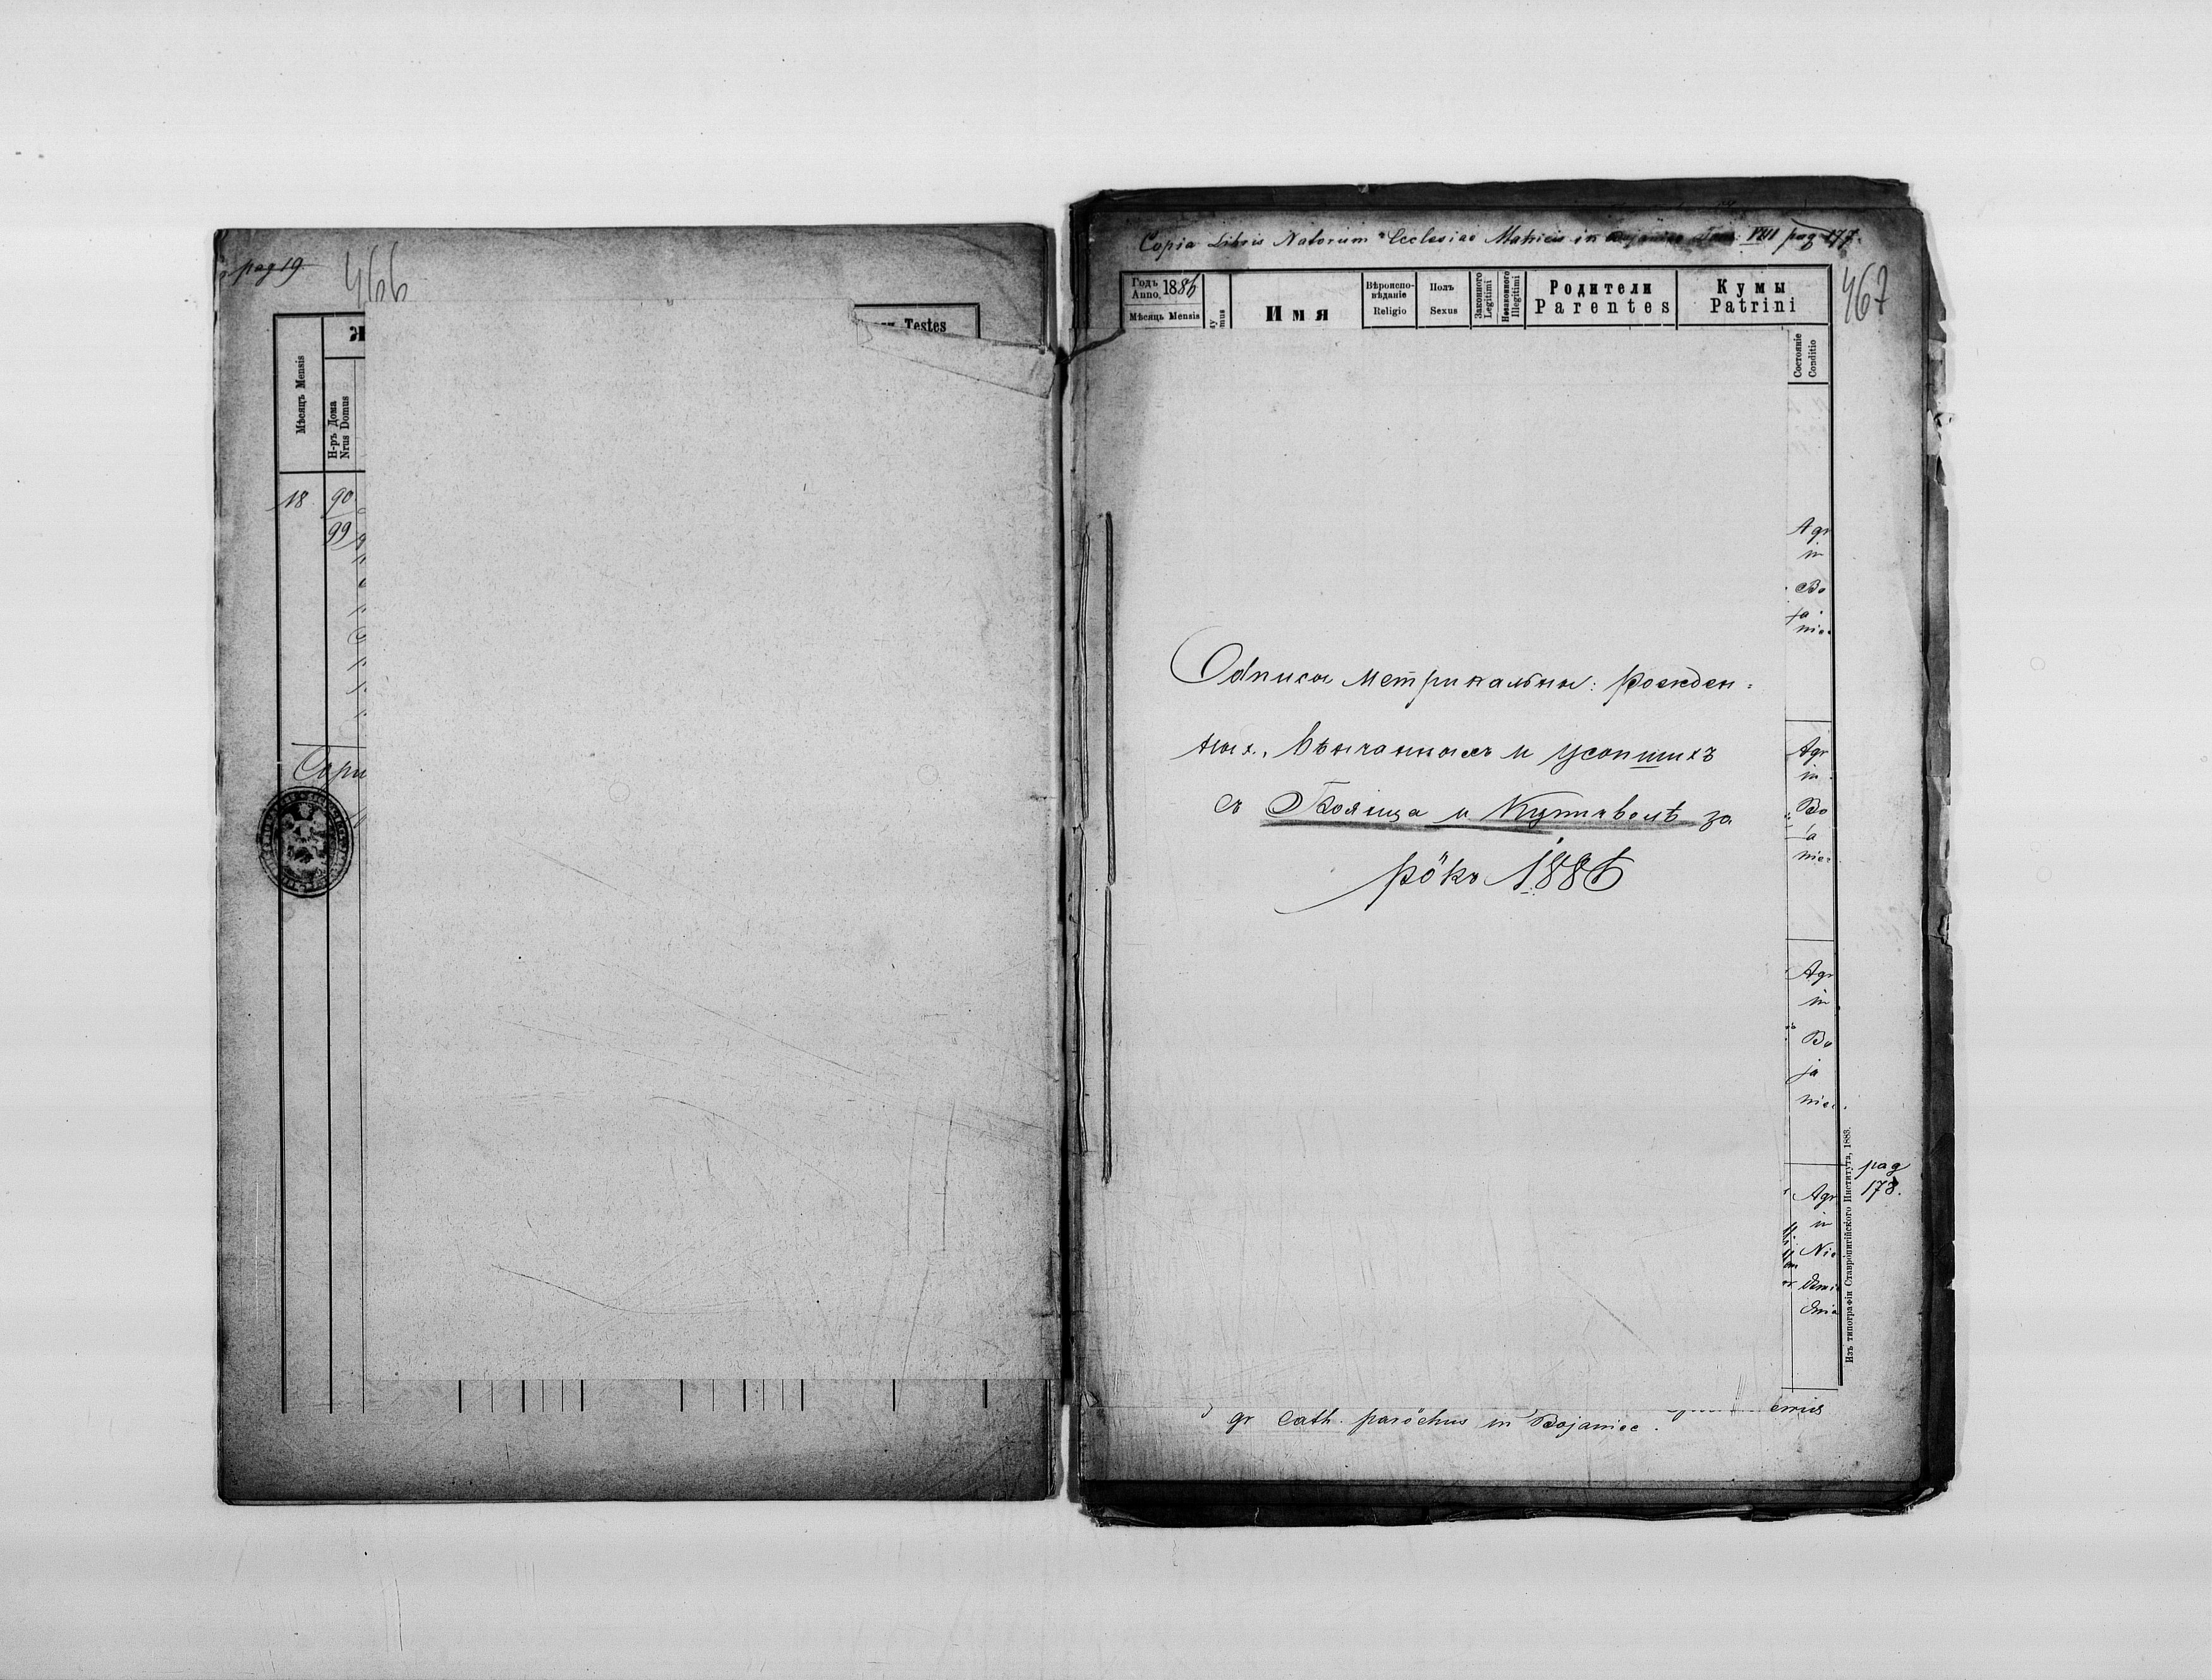 pag 19
466
Testes
Мѣсяцъ Mensis
Н-ръ Дома
Nrus Domus
18
90
99
Copia Libris Natorum Ecclesiae Matricis in Bojaniec Tom: VIII pag 177.
467
Годъ
Anno.
1886
Мѣсяцъ Mensis
Имя
Вѣроиспо-
вѣданіе
Religio
Полъ
Sexus
Законного
Legitimi
Незаконного
Illegitimi
Родители
Parentes
Кумы
Patrini
Состояніе
Conditio
Agr
in
Bo
ja
nie
Одписы метрикальны: рожден-
ных, вѣнчанныхъ и усопшихъ
съ Боянца и за
рôкъ 1886
Agr
in
Bo
ja
nie
Agr
in
Bo
ja
nie
Agr
in
Nie
dmia
pag
178.
Изъ типографіи Ставропигійского Института, 1883.
gr cath. parochus in Bojaniec.